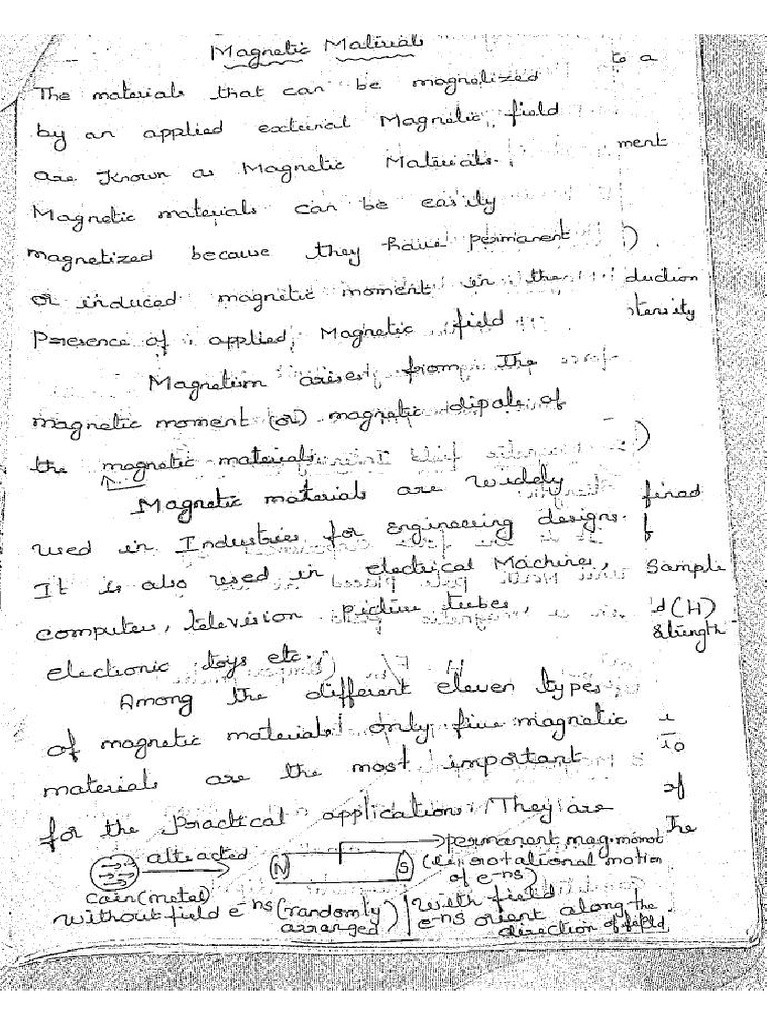 Magnetic Materials
The materials that can be magnetized
by an applied external Magnetic field
are known as Magnetic Materials.
Magnetic materials can be easily
magnetized because they have permanent
or induced magnetic moment in the
Presence of applied Magnetic field
Magnetism arises from the
magnetic moment (or) magnetic dipole of
the magnetic materials
Magnetic materials are widely
used in Industries for engineering designs.
It is also used in electrical Machines,
computer, television picture tubes,
electronic toys etc.
Among the different eleven types
of magnetic materials only five magnetic
materials are the most important
for the Practical applications. They are
attracted
N S
permanent mag. moment
(i.e., rotational motion
of e-ns)
coin (metal)
without field e-ns (randomly arranged)
with field
e-ns orient along the
direction of field
to a
ment
)
duction
tensity
)
Sample
d (H)
strength
of
The